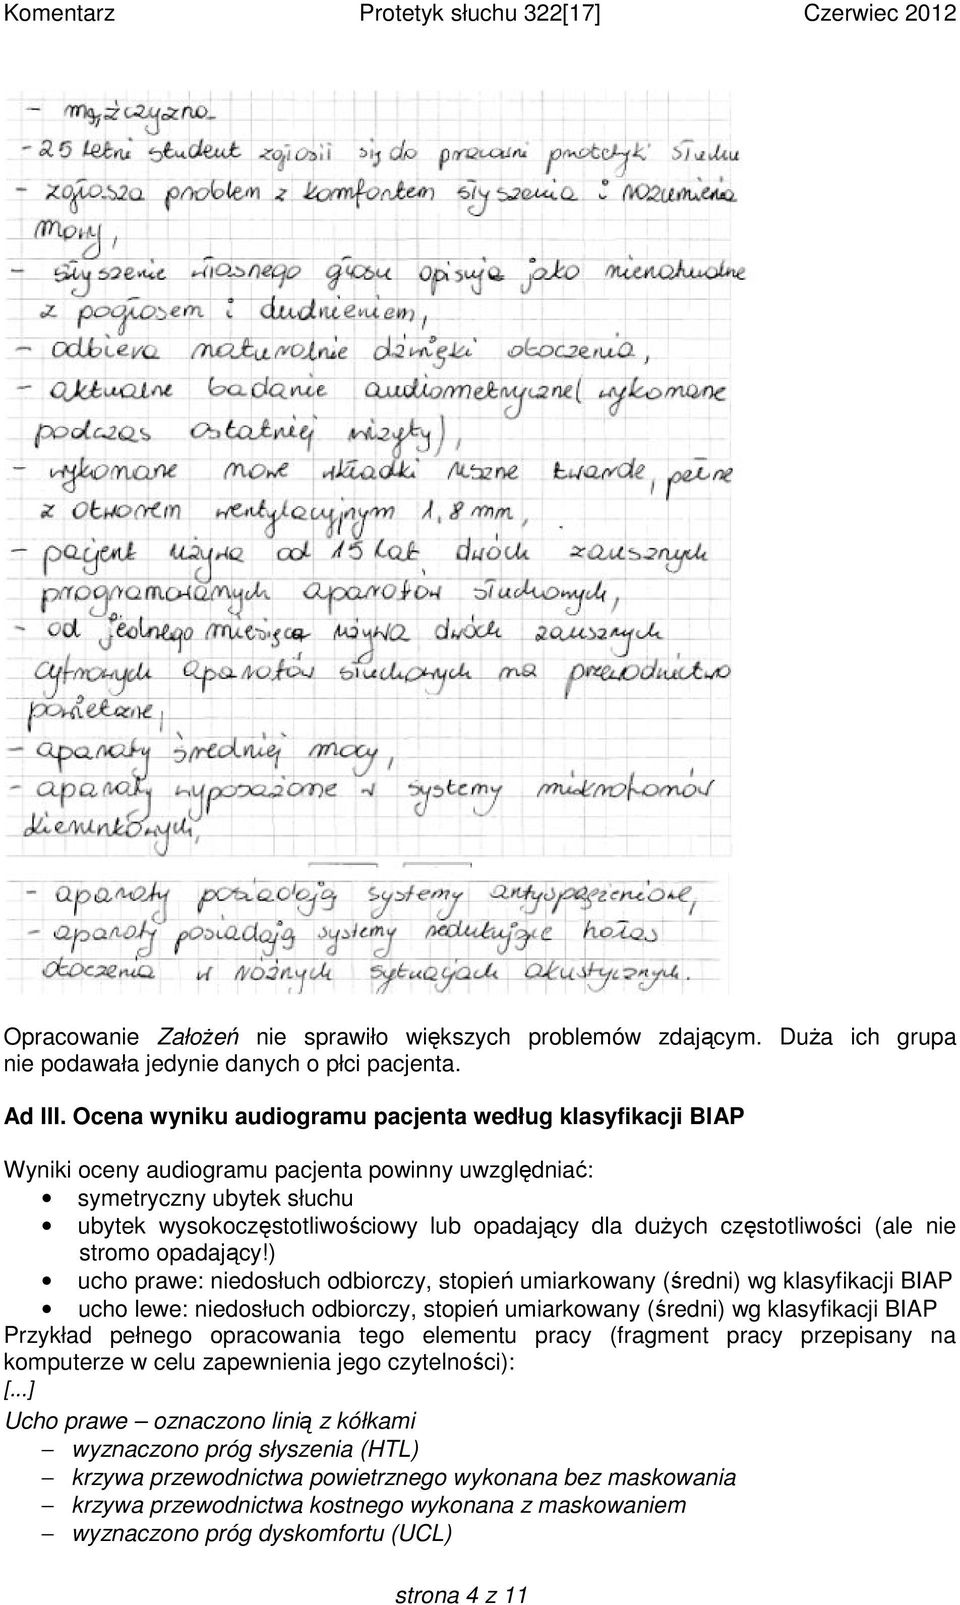 Komentarz Protetyk słuchu 322[17] Czerwiec 2012
- mężczyzna
- 25 letni student zgłosił się do pracowni protetyki słuchu
- zgłosza problem z komfortem słyszenia i rozumienia
mowy,
- słyszenie własnego głosu opisuje jako nienaturalne
z pogłosem i dudnieniem,
- odbiera naturalnie dźwięki otoczenia,
- aktualne badanie audiometryczne (wykonane
podczas ostatniej wizyty),
- wykonane nowe wkładki uszne twarde, pełne
z otworem wentylacyjnym 1,8 mm,
- pacjent używa od 15 lat dwóch zausznych
programowanych aparatów słuchowych,
- od jednego miesiąca używa dwóch zausznych
cyfrowych aparatów słuchowych na przewodnictwo
powietrzne,
- aparaty średniej mocy,
- aparaty wyposażone w systemy mikrofonów
kierunkowych,
- aparaty posiadają systemy antysprzężeniowe,
- aparaty posiadają systemy redukujące hałas
otoczenia w różnych sytuacjach akustycznych.
Opracowanie Założeń nie sprawiło większych problemów zdającym. Duża ich grupa
nie podawała jedynie danych o płci pacjenta.
Ad III. Ocena wyniku audiogramu pacjenta według klasyfikacji BIAP
Wyniki oceny audiogramu pacjenta powinny uwzględniać:
• symetryczny ubytek słuchu
• ubytek wysokoczęstotliwościowy lub opadający dla dużych częstotliwości (ale nie
stromo opadający!)
• ucho prawe: niedosłuch odbiorczy, stopień umiarkowany (średni) wg klasyfikacji BIAP
• ucho lewe: niedosłuch odbiorczy, stopień umiarkowany (średni) wg klasyfikacji BIAP
Przykład pełnego opracowania tego elementu pracy (fragment pracy przepisany na
komputerze w celu zapewnienia jego czytelności):
[...]
Ucho prawe – oznaczono linią z kółkami
– wyznaczono próg słyszenia (HTL)
– krzywa przewodnictwa powietrznego wykonana bez maskowania
– krzywa przewodnictwa kostnego wykonana z maskowaniem
– wyznaczono próg dyskomfortu (UCL)
strona 4 z 11